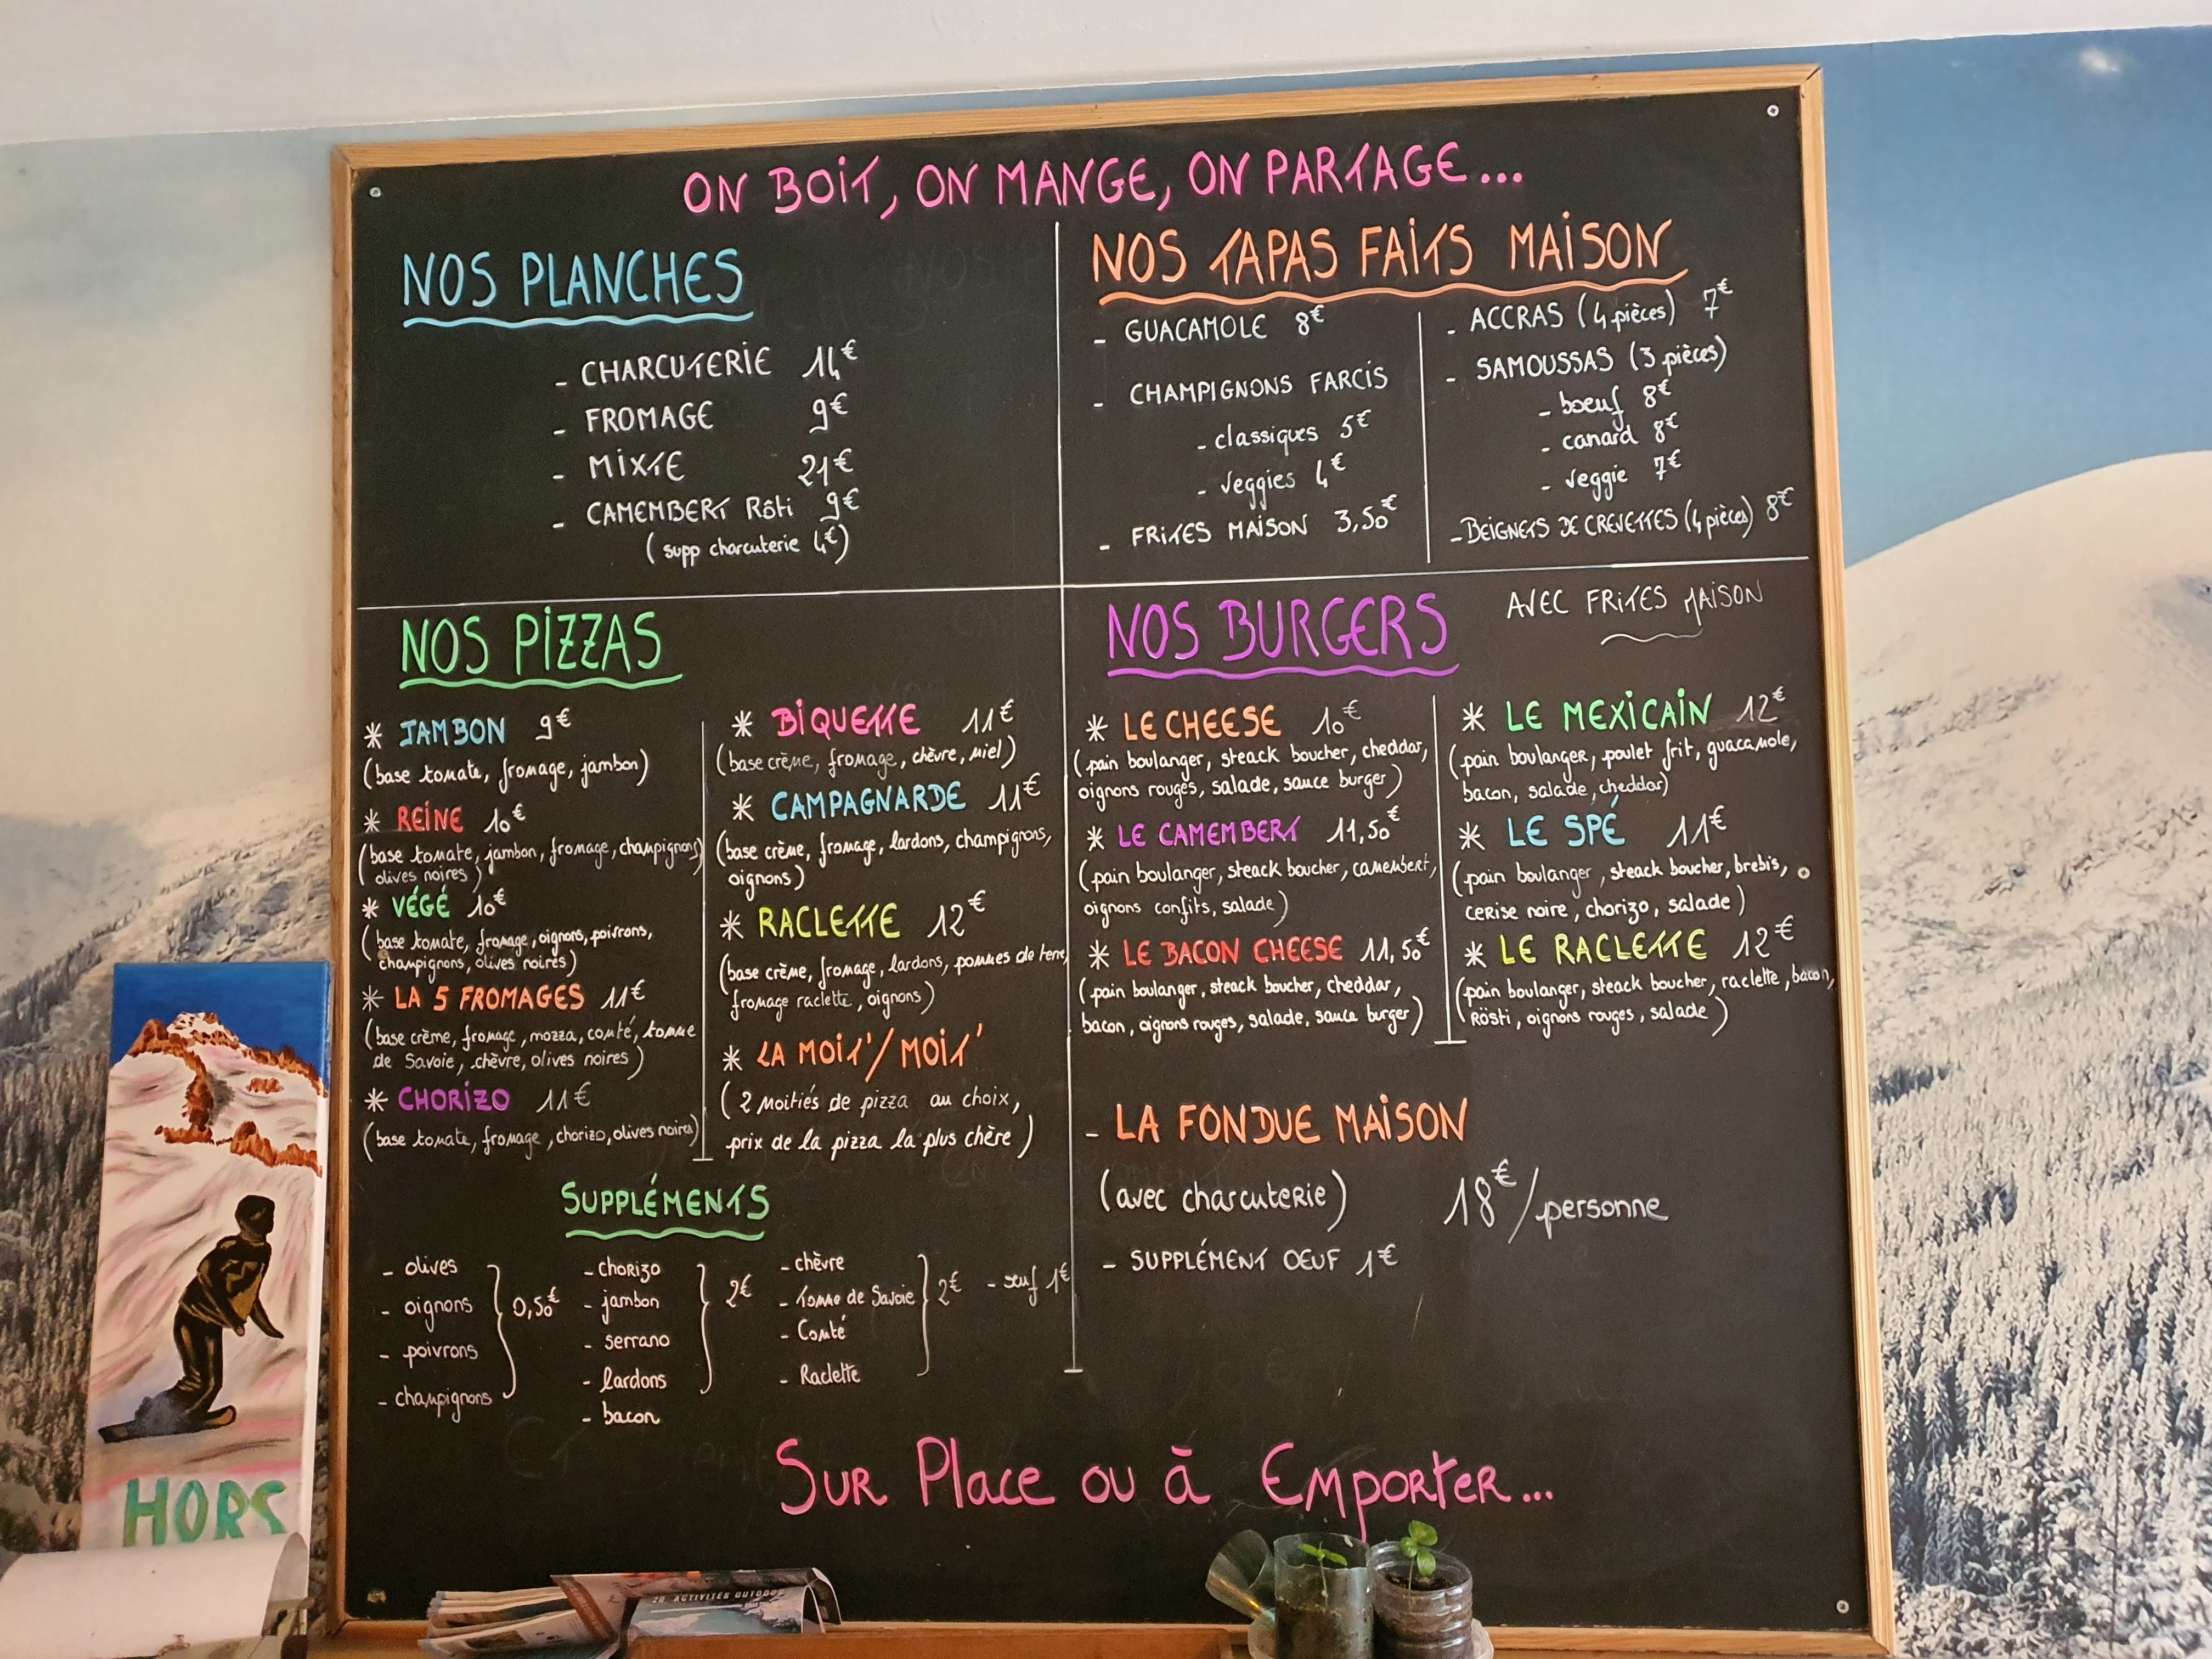 ON BOIT, ON MANGE, ON PARTAGE...
NOS PLANCHES
- CHARCUTERIE 14€
- FROMAGE 9€
- MIXTE 21€
- CAMEMBERT Rôti 9€
(supp charcuterie 4€)
NOS TAPAS FAITS MAISON
- GUACAMOLE 8€
- CHAMPIGNONS FARCIS
- classiques 5€
- veggies 4€
- FRITES MAISON 3,50€
- ACCRAS (4 pièces) 7€
- SAMOUSSAS (3 pièces)
- boeuf 8€
- canard 8€
- veggie 7€
- BEIGNETS DE CREVETTES (4 pièces) 8€
NOS PIZZAS
* JAMBON 9€
(base tomate, fromage, jambon)
* REINE 10€
(base tomate, jambon, fromage, champignons
olives noires)
* VÉGÉ 10€
(base tomate, fromage, oignons, poivrons,
champignons, olives noires)
* LA 5 FROMAGES 11€
(base crème, fromage, mozza, comté, tomme
de Savoie, chèvre, olives noires)
* CHORIZO 11€
(base tomate, fromage, chorizo, olives noires)
* BIQUETTE 11€
(base crème, fromage, chèvre, miel)
* CAMPAGNARDE 11€
(base crème, fromage, lardons, champignons,
oignons)
* RACLETTE 12€
(base crème, fromage, lardons, pommes de terre,
fromage raclette, oignons)
* LA MOIT'/MOIT'
(2 moitiés de pizza au choix,
prix de la pizza la plus chère)
SUPPLÉMENTS
- olives
- oignons
- poivrons
- champignons
0,50€
- chorizo
- jambon
- serrano
- lardons
- bacon
2€
- chèvre
- Tomme de Savoie
- Comté
- Raclette
2€
- œuf 1€
NOS BURGERS
AVEC FRITES MAISON
* LE CHEESE 10€
(pain boulanger, steack boucher, cheddar,
oignons rouges, salade, sauce burger)
* LE CAMEMBERT 11,50€
(pain boulanger, steack boucher, camembert,
oignons confits, salade)
* LE BACON CHEESE 11,50€
(pain boulanger, steack boucher, cheddar,
bacon, oignons rouges, salade, sauce burger)
* LE MEXICAIN 12€
(pain boulanger, poulet frit, guacamole,
bacon, salade, cheddar)
* LE SPÉ 11€
(pain boulanger, steack boucher, brebis,
cerise noire, chorizo, salade)
* LE RACLETTE 12€
(pain boulanger, steack boucher, raclette, bacon,
Rösti, oignons rouges, salade)
- LA FONDUE MAISON
(avec charcuterie) 18€/personne
- SUPPLÉMENT OEUF 1€
SUR PLACE OU à EMPORTER...
HORS
ACTIVITÉS OUTDOOR